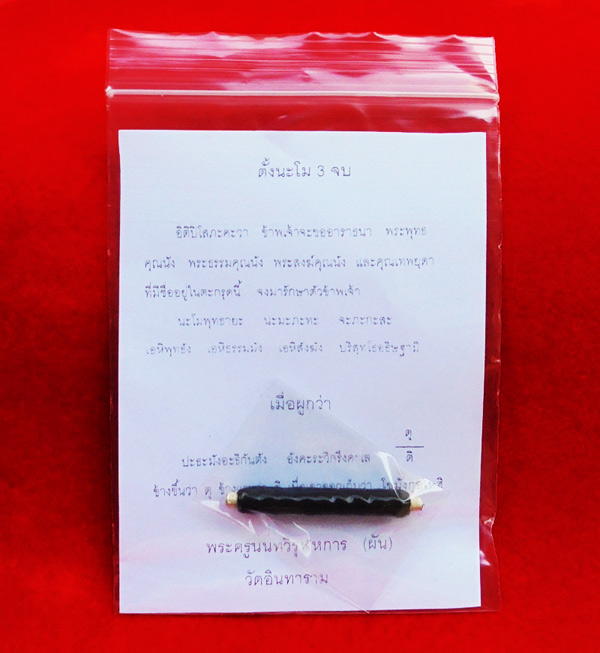 ตั้งนะโม 3 จบ
อิติปิโสภะคะวา ข้าพเจ้าจะขออาราธนา พระพุทธ
คุณนัง พระธรรมคุณนัง พระสงฆ์คุณนัง และคุณเทพยุดา
ที่มีชื่ออยู่ในตะกรุดนี้ จงมารักษาตัวข้าพเจ้า
นะโมพุทธายะ นะมะภะทะ จะภะกะสะ
เอหิพุทธัง เอหิธรรมมัง เอหิสังฆัง ปริสุทโธอธิษฐามิ
เมื่อผูกว่า
ตุ
ปะธะมังอะธิกันตัง อังคะระวิกรึงคเล ติ
ข้างขึ้นว่า ตุ ข้าง
พระครูนนทวิรุฬหการ (ผัน)
วัดอินทาราม